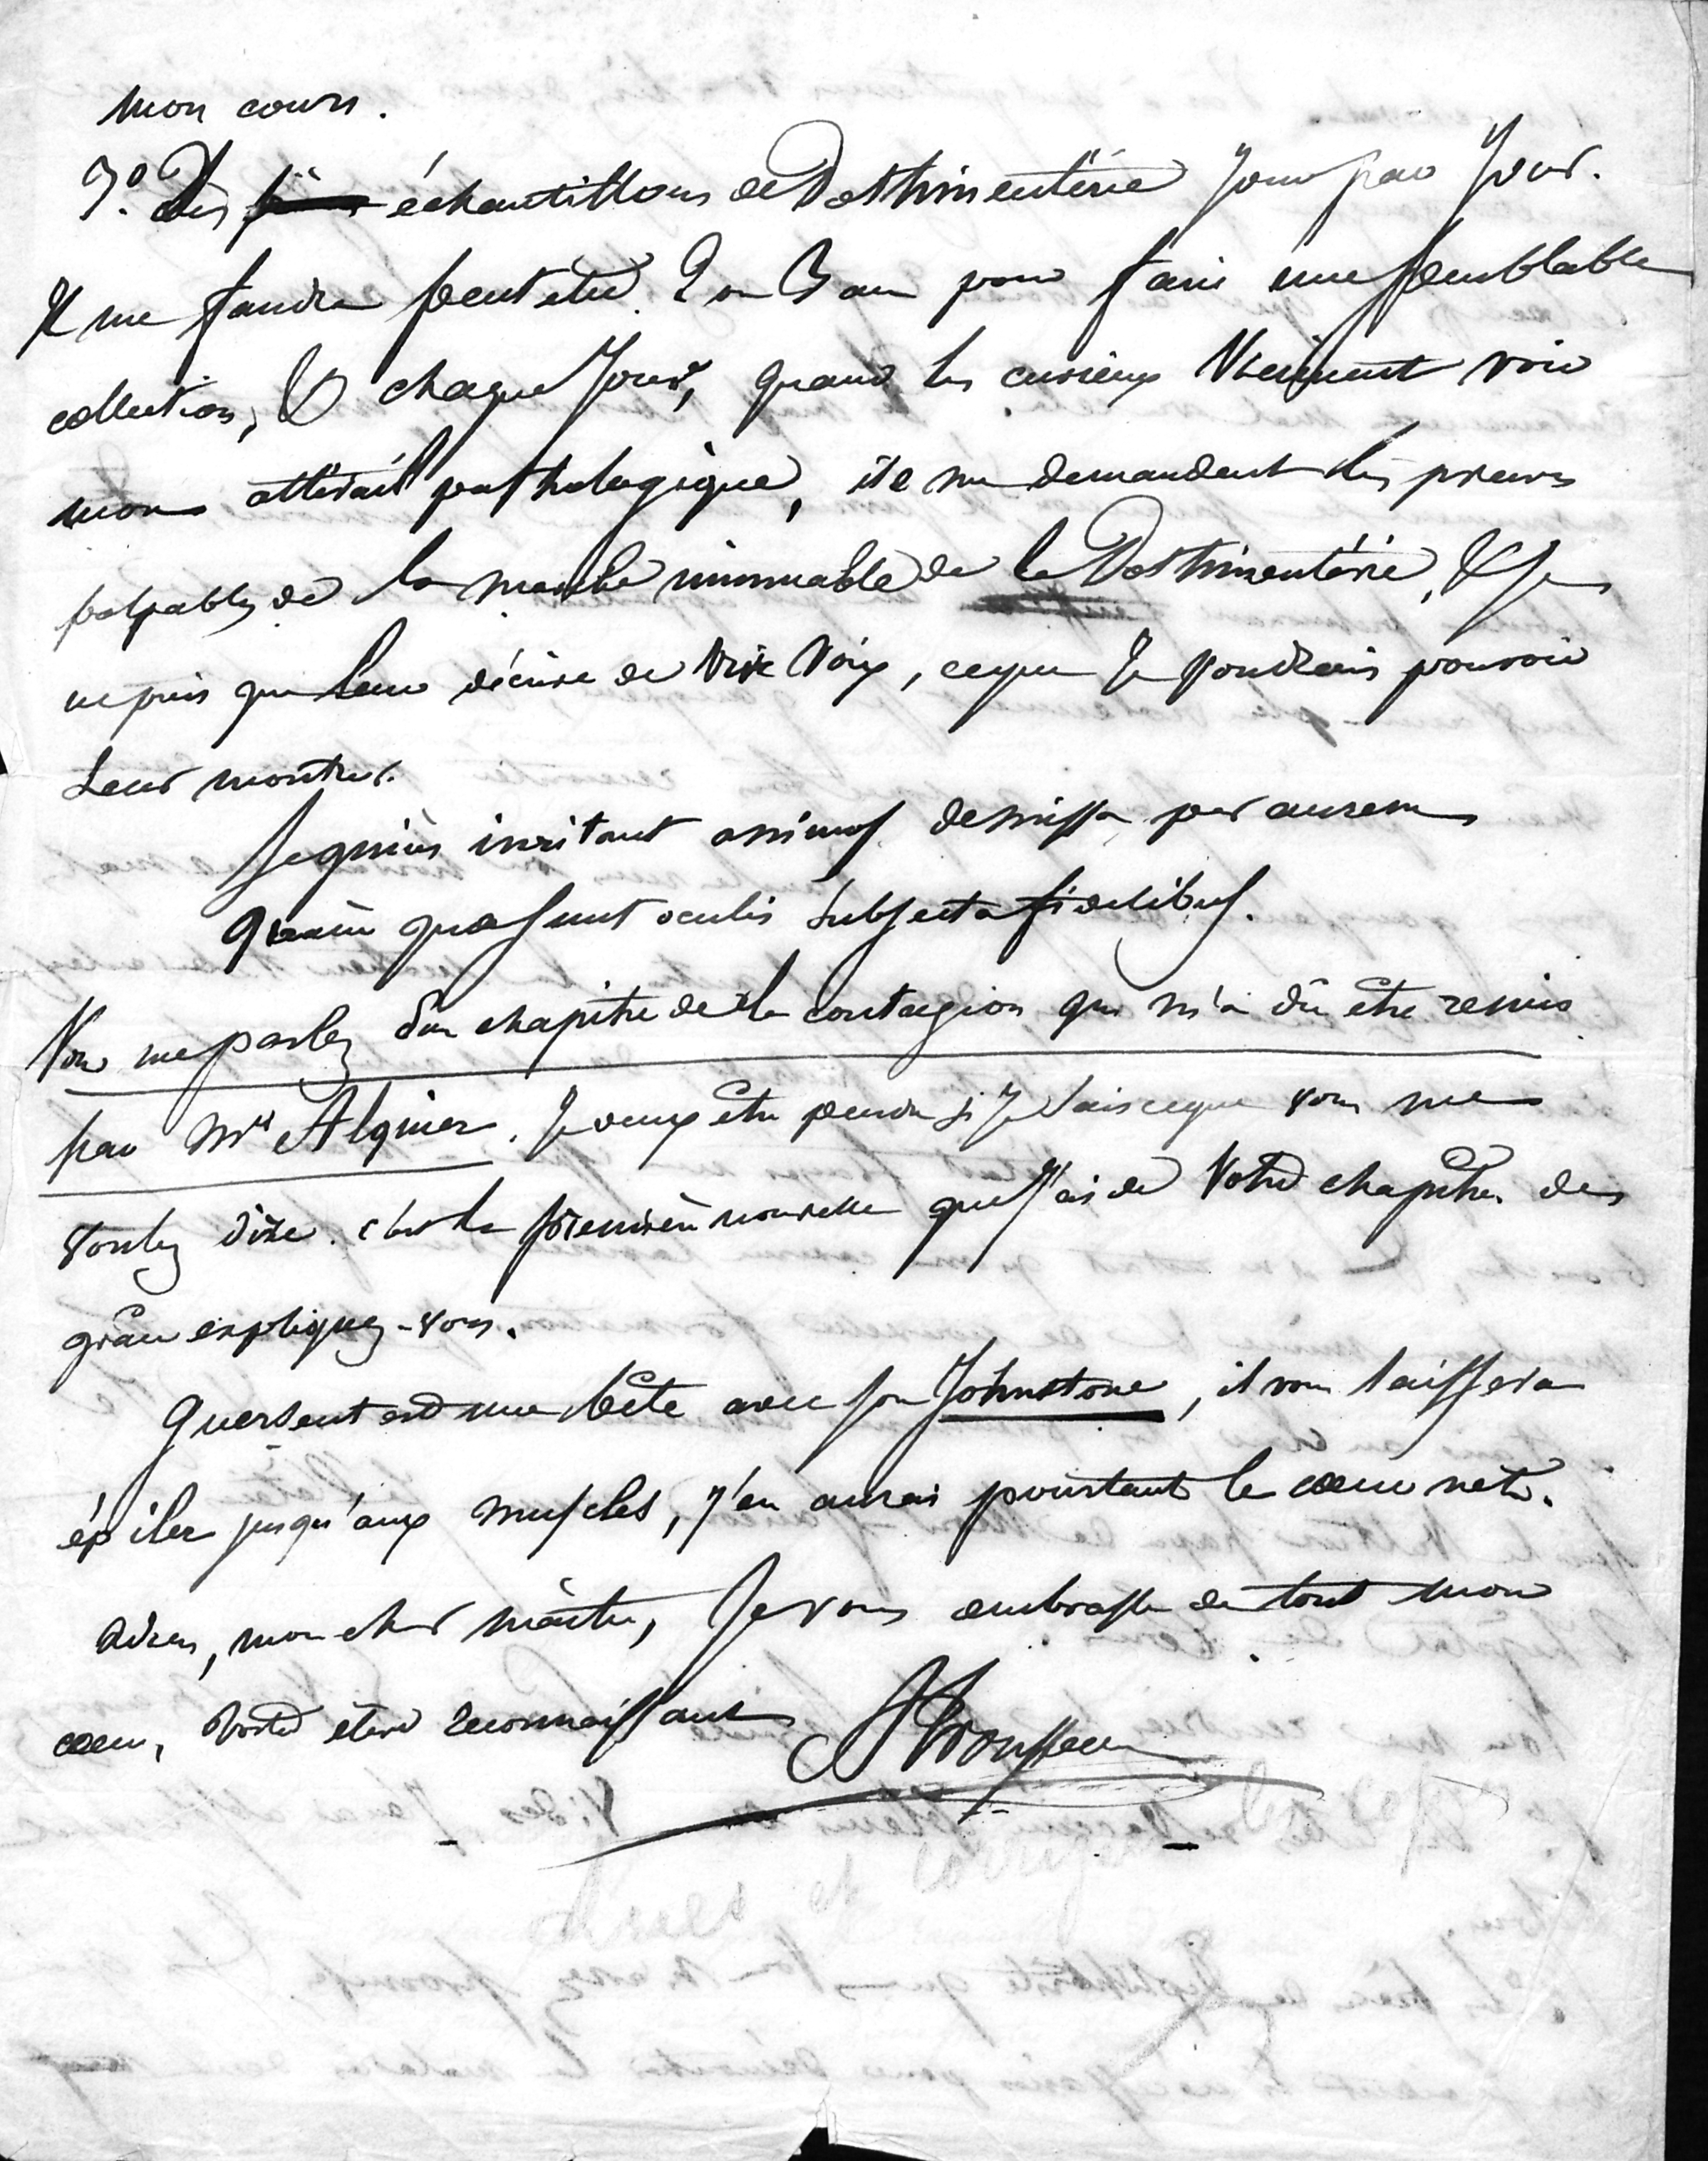 mon cours.
3°. Des échantillons de Dothinentérie Jour par Jour.
Il me faudra peutetre 2 ou 3 ans pour faire une semblable
collection, & chaque Jour, quand les curieux viennent voir
mon attirail pathologique, ils me demandent des preuves
palpables de la marche immuable de la Dothinentérie, & Je
ne puis que leur décrire de vive voix, ceque Je voudrais pouvoir
leur montrer.
Segniùs irritant animos demissa per aurem
Quàm quae sunt oculis subjecta fidelibus.
Vous me parlez d'un chapitre de la contagion qui m'a dû être remis
par Mr Alquier. Je veux être pendu si Je sais ceque vous me
voulez dire. c'est la première nouvelle que J'ai de votre chapitre. de
grâce expliquez-vous.
Guersent est une bête avec son Johnstone, il vous laissera
épiler jusqu'aux muscles, j'en aurai pourtant le coeur net.
adieu, mon cher maître, Je vous embrasse de tout mon
coeur, votre élève reconnaissant
ATrousseau